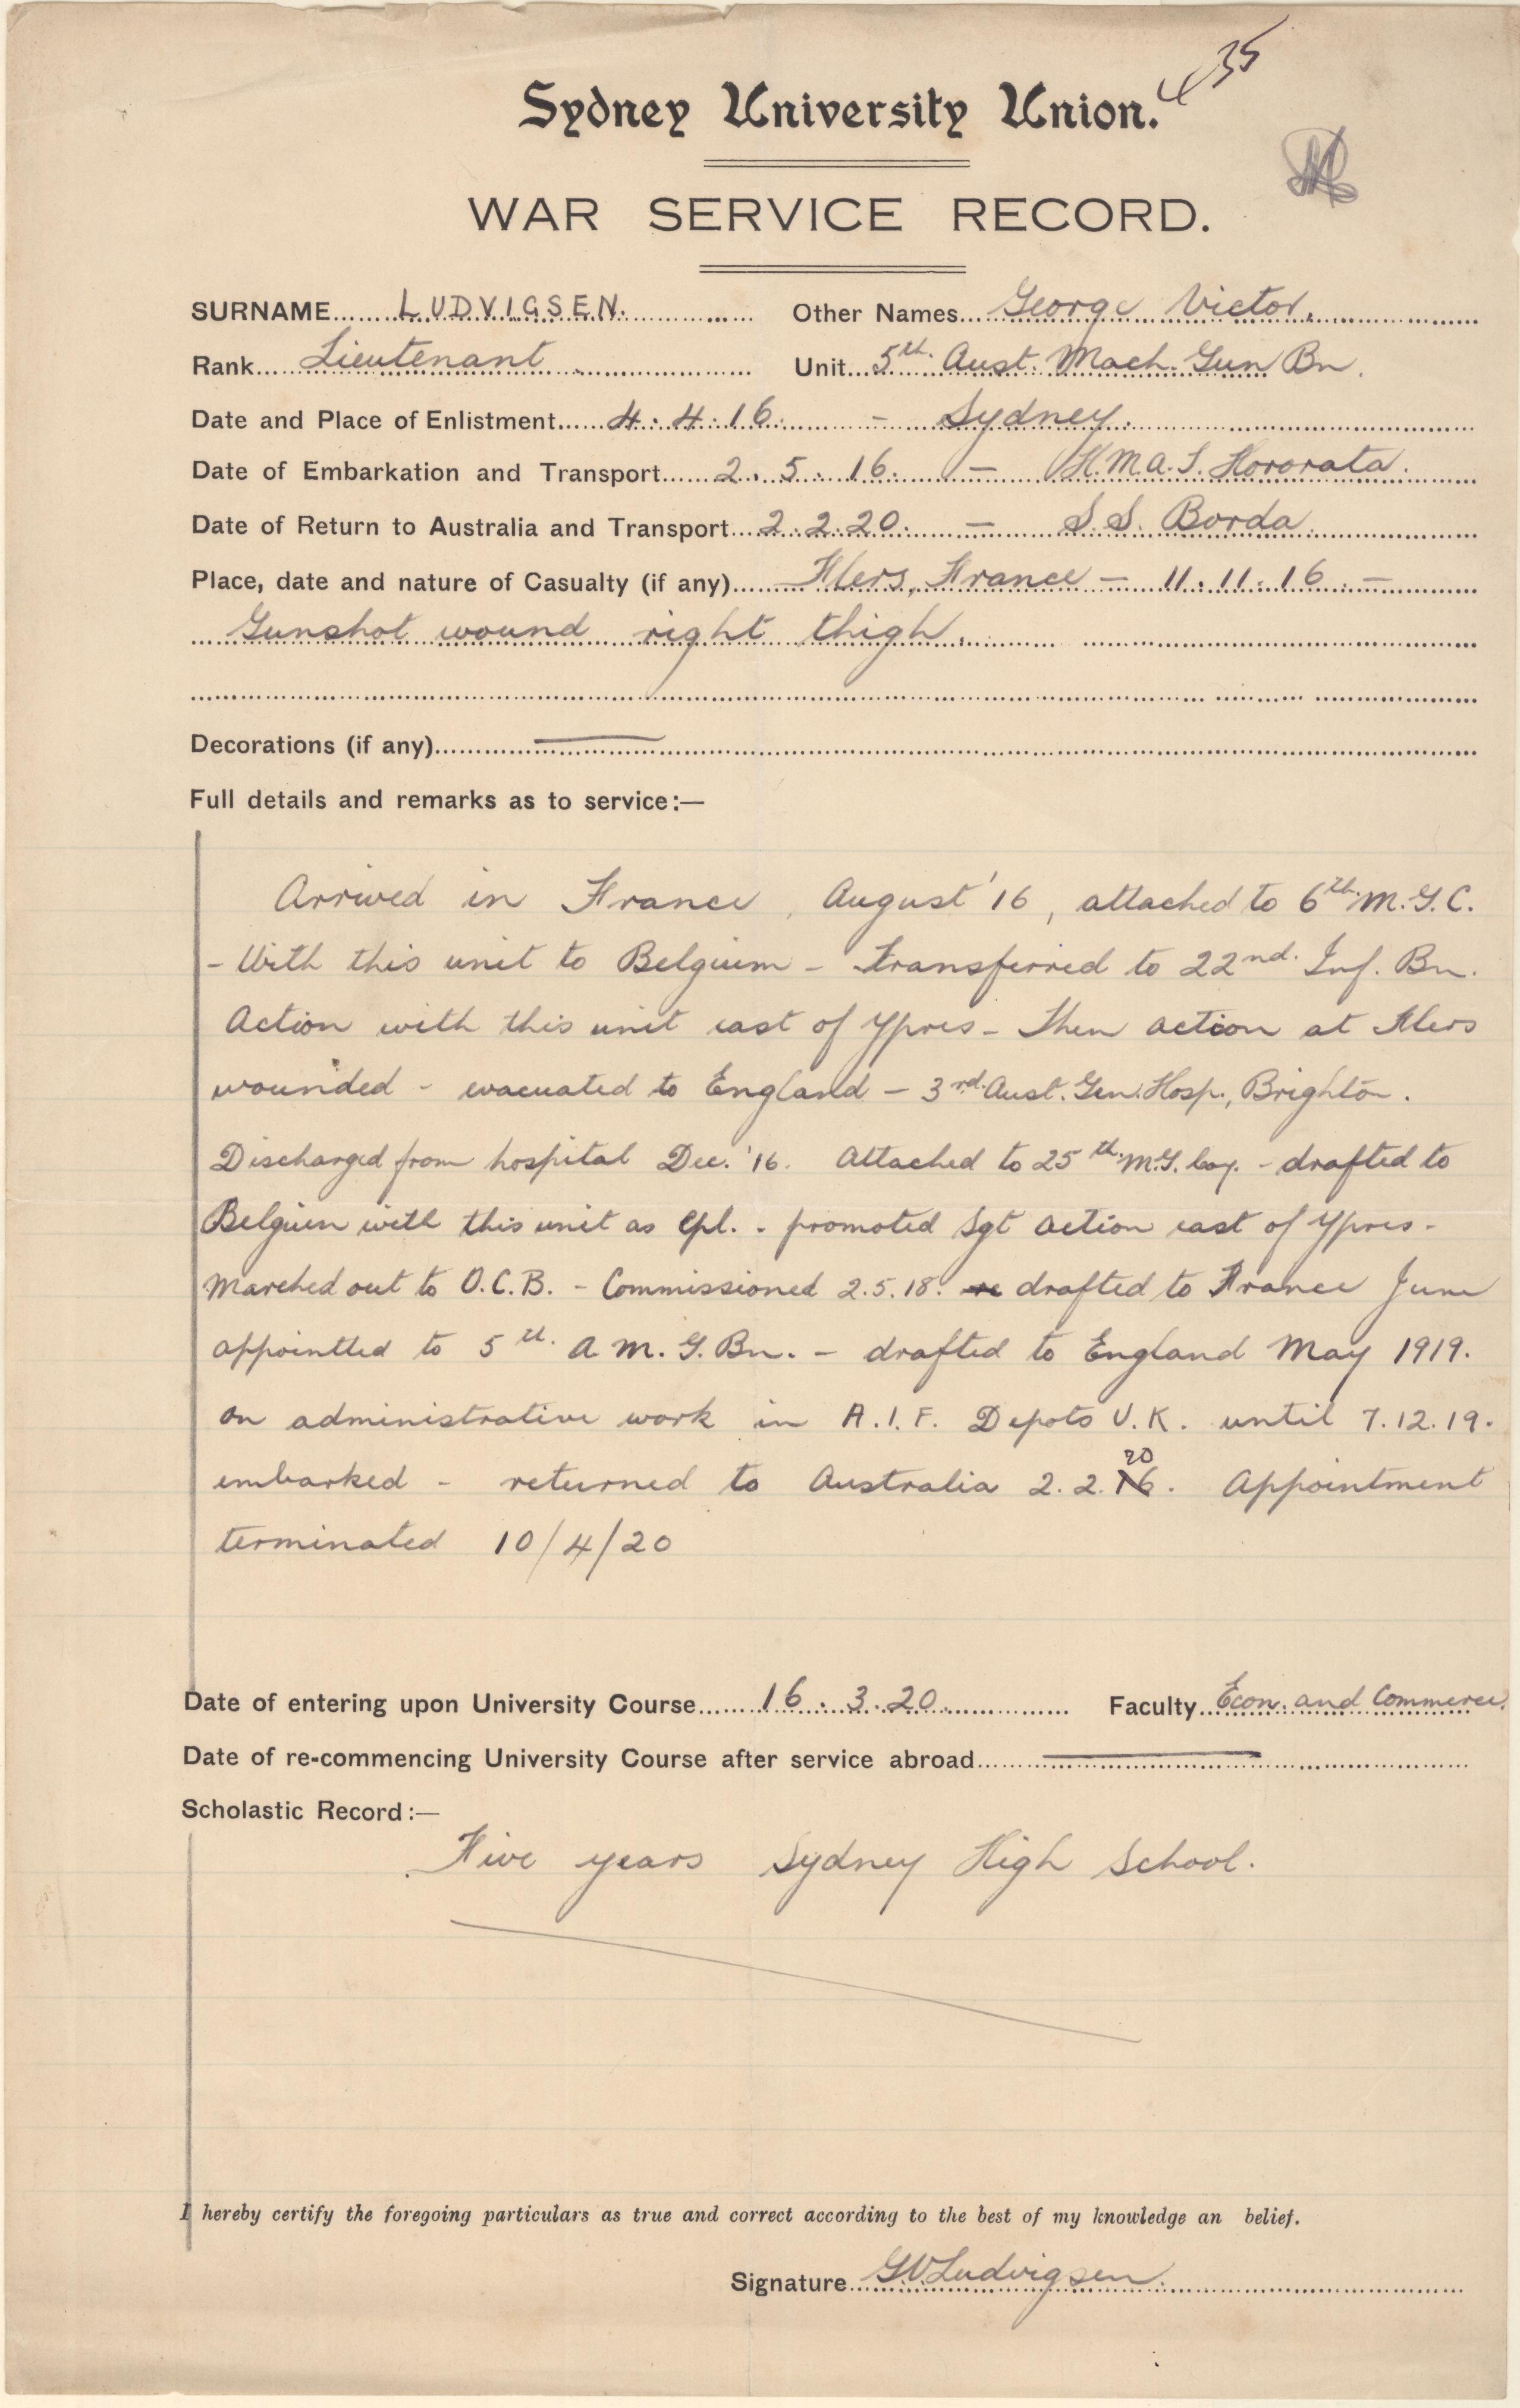 435
Sydney University Union.
WAR SERVICE RECORD.
SURNAME LUDVIGSEN. Other Names George Victor.
Rank Lieutenant Unit 5th. Aust. Mach. Gun Bn.
Date and Place of Enlistment 4.4.16. - Sydney.
Date of Embarkation and Transport 2.5.16. - H.M.A.S. Hororata.
Date of Return to Australia and Transport 2.2.20. - S.S. Borda.
Place, date and nature of Casualty (if any) Flers, France - 11.11.16. -
Gunshot wound right thigh.
Decorations (if any) —
Full details and remarks as to service:—
Arrived in France, August '16, attached to 6th. M.G.C.
- With this unit to Belgium - transferred to 22nd. Inf. Bn.
Action with this unit east of Ypres - Then action at Flers
wounded - evacuated to England - 3rd. Aust. Gen. Hosp., Brighton.
Discharged from hospital Dec. '16. Attached to 25th. M.G. Coy. - drafted to
Belgium with this unit as Cpl. - promoted Sgt action east of Ypres -
Marched out to O.C.B. - Commissioned 2.5.18. re drafted to France June
appointted to 5th. A.M.G.Bn. - drafted to England May 1919.
on administrative work in A.I.F. Depots U.K. until 7.12.19.
embarked - returned to Australia 2.2.16 20. Appointment
terminated 10/4/20
Date of entering upon University Course 16.3.20. Faculty Econ. and Commerce.
Date of re-commencing University Course after service abroad —
Scholastic Record:—
Five years Sydney High School.
I hereby certify the foregoing particulars as true and correct according to the best of my knowledge an belief.
Signature G.V. Ludvigsen.